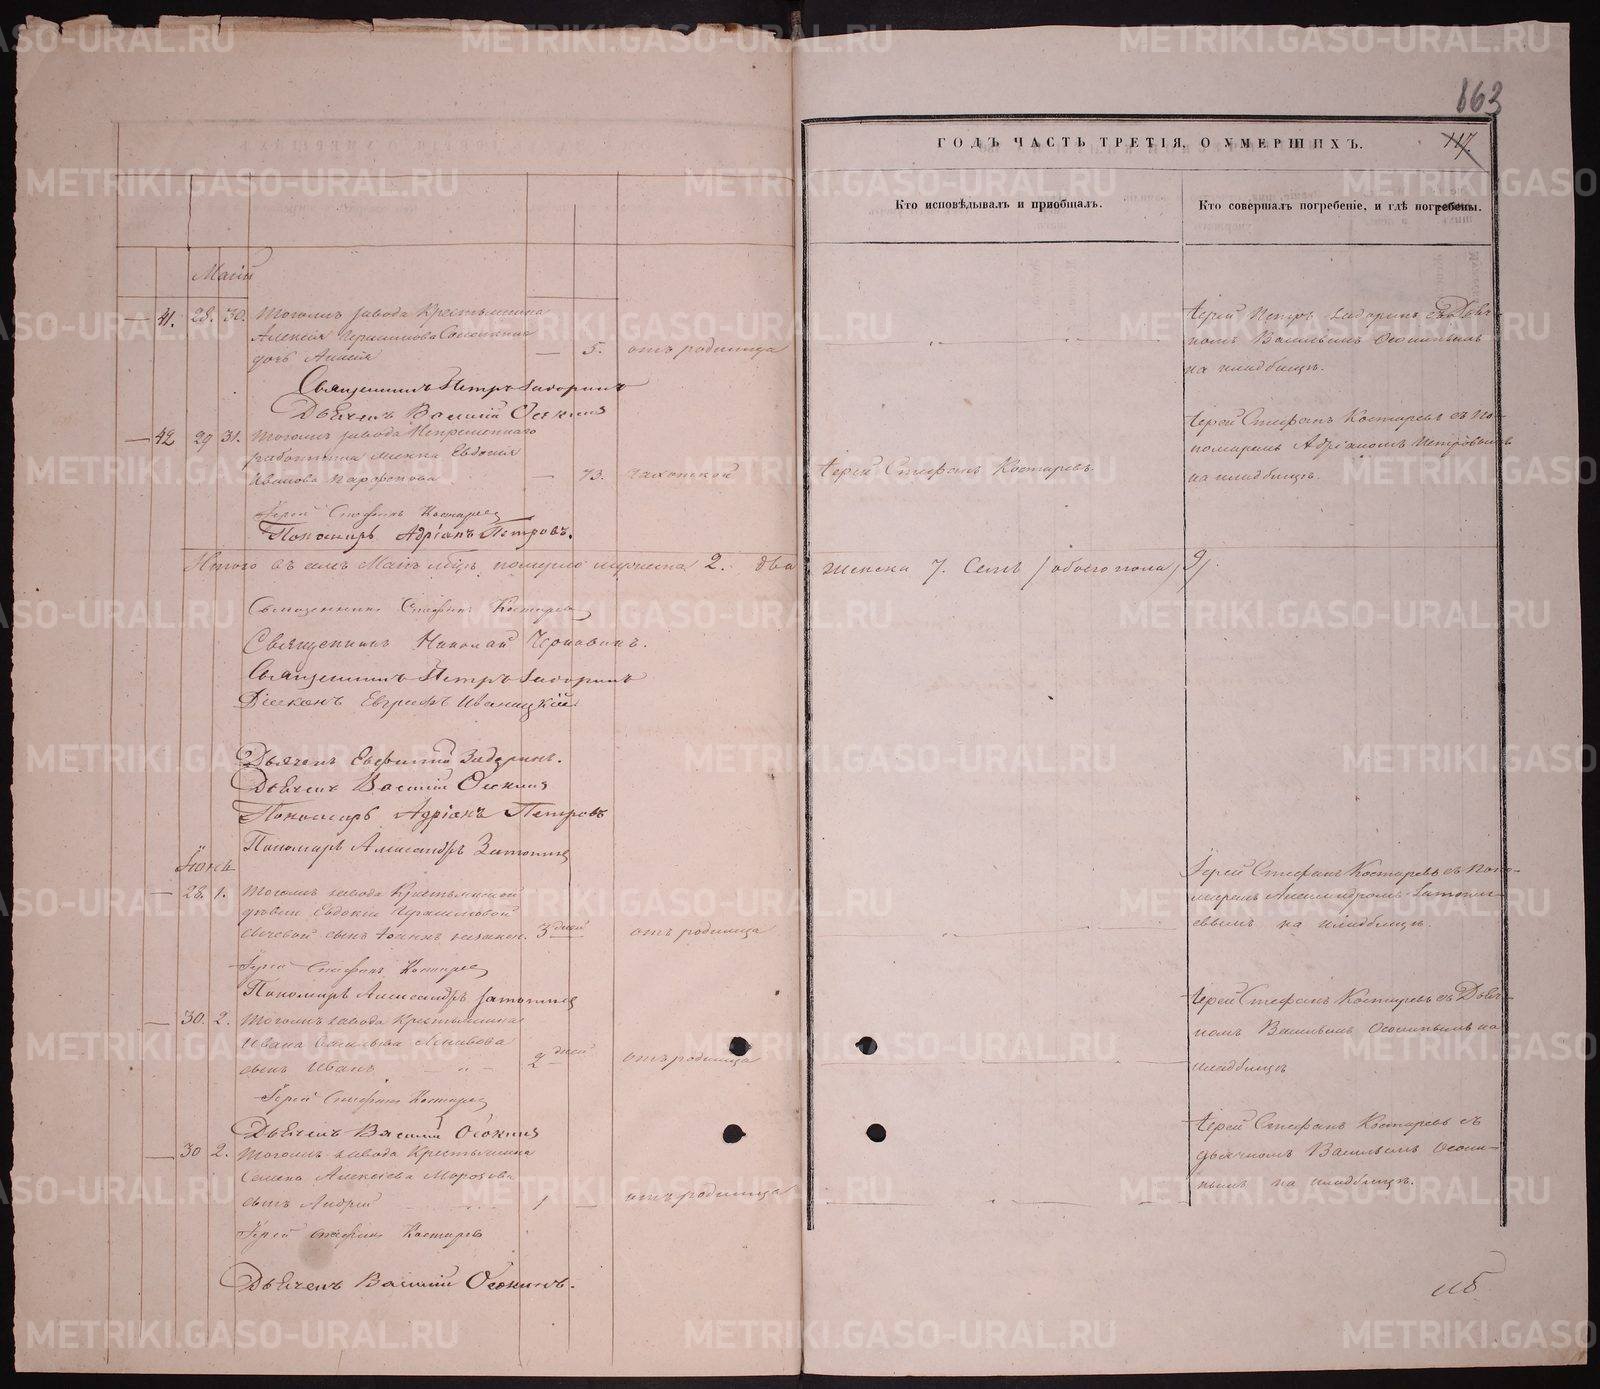 863
117.
ГОДЪ ЧАСТЬ ТРЕТІЯ, О УМЕРШИХЪ.
Кто исповѣдывалъ и пріобщалъ.
Кто совершалъ погребеніе, и гдѣ погребены.
Маій
— 41. 28. 30. Тогожъ завода Крестьянина
Алексѣя
дочь — 5. отъ родимца
Священникъ Петръ
Дьячекъ Василій Осокинъ
Іерей Петръ съ Дьяч-
комъ Васильемъ Осокинымъ
на кладбищѣ.
— 42 29 31. Тогожъ завода Непременнаго
работника жена Евдокия
Иванова — 73. чахоткой
Іерей Стефанъ Костаревъ
Іерей Стефанъ Костаревъ съ По-
номаремъ Адріаномъ Петровымъ
на кладбищѣ.
Іерей Стефанъ Костаревъ
Пономарь Адріанъ Петровъ.
Итого въ семъ Маіѣ мѣцѣ померло мужеска 2. два женска 7. Семь /обоего пола/ 9/.
Священникъ Стефанъ Костаревъ
Священникъ Николай Черновинъ.
Священникъ Петръ
Діаконъ Евграфъ Иваницкій
Дьячекъ Евфимій
Дьячекъ Василій Осокинъ
Пономарь Адріанъ Петровъ
Пономарь Александръ
Іюнь
— 28. 1. Тогожъ завода Крестьянской
дѣвки Евдокии
сынъ Іоаннъ незакон. 3 дней отъ родимца
Іерей Стефанъ Костаревъ съ Поно-
маремъ Александромъ
на кладбищѣ.
Іерей Стефанъ Костаревъ
Пономарь Александръ
— 30. 2. Тогожъ завода Крестьянина
Ивана
сынъ Иванъ — „ — 2 дней отъ родимца
Іерей Стефанъ Костаревъ съ Дьяч-
комъ Васильемъ Осокинымъ на
кладбищѣ
Іерей Стефанъ Костаревъ
Дьячекъ Василій Осокинъ
— 30 2. Тогожъ завода Крестьянина
Семена Алексѣева Морозова
сынъ Андрей 1 — отъ родимца
Іерей Стефанъ Костаревъ съ
дьячкомъ Васильемъ Осоки-
нымъ на кладбищѣ.
Іерей Стефанъ Костаревъ
Дьячекъ Василій Осокинъ.
METRIKI.GASO-URAL.RU